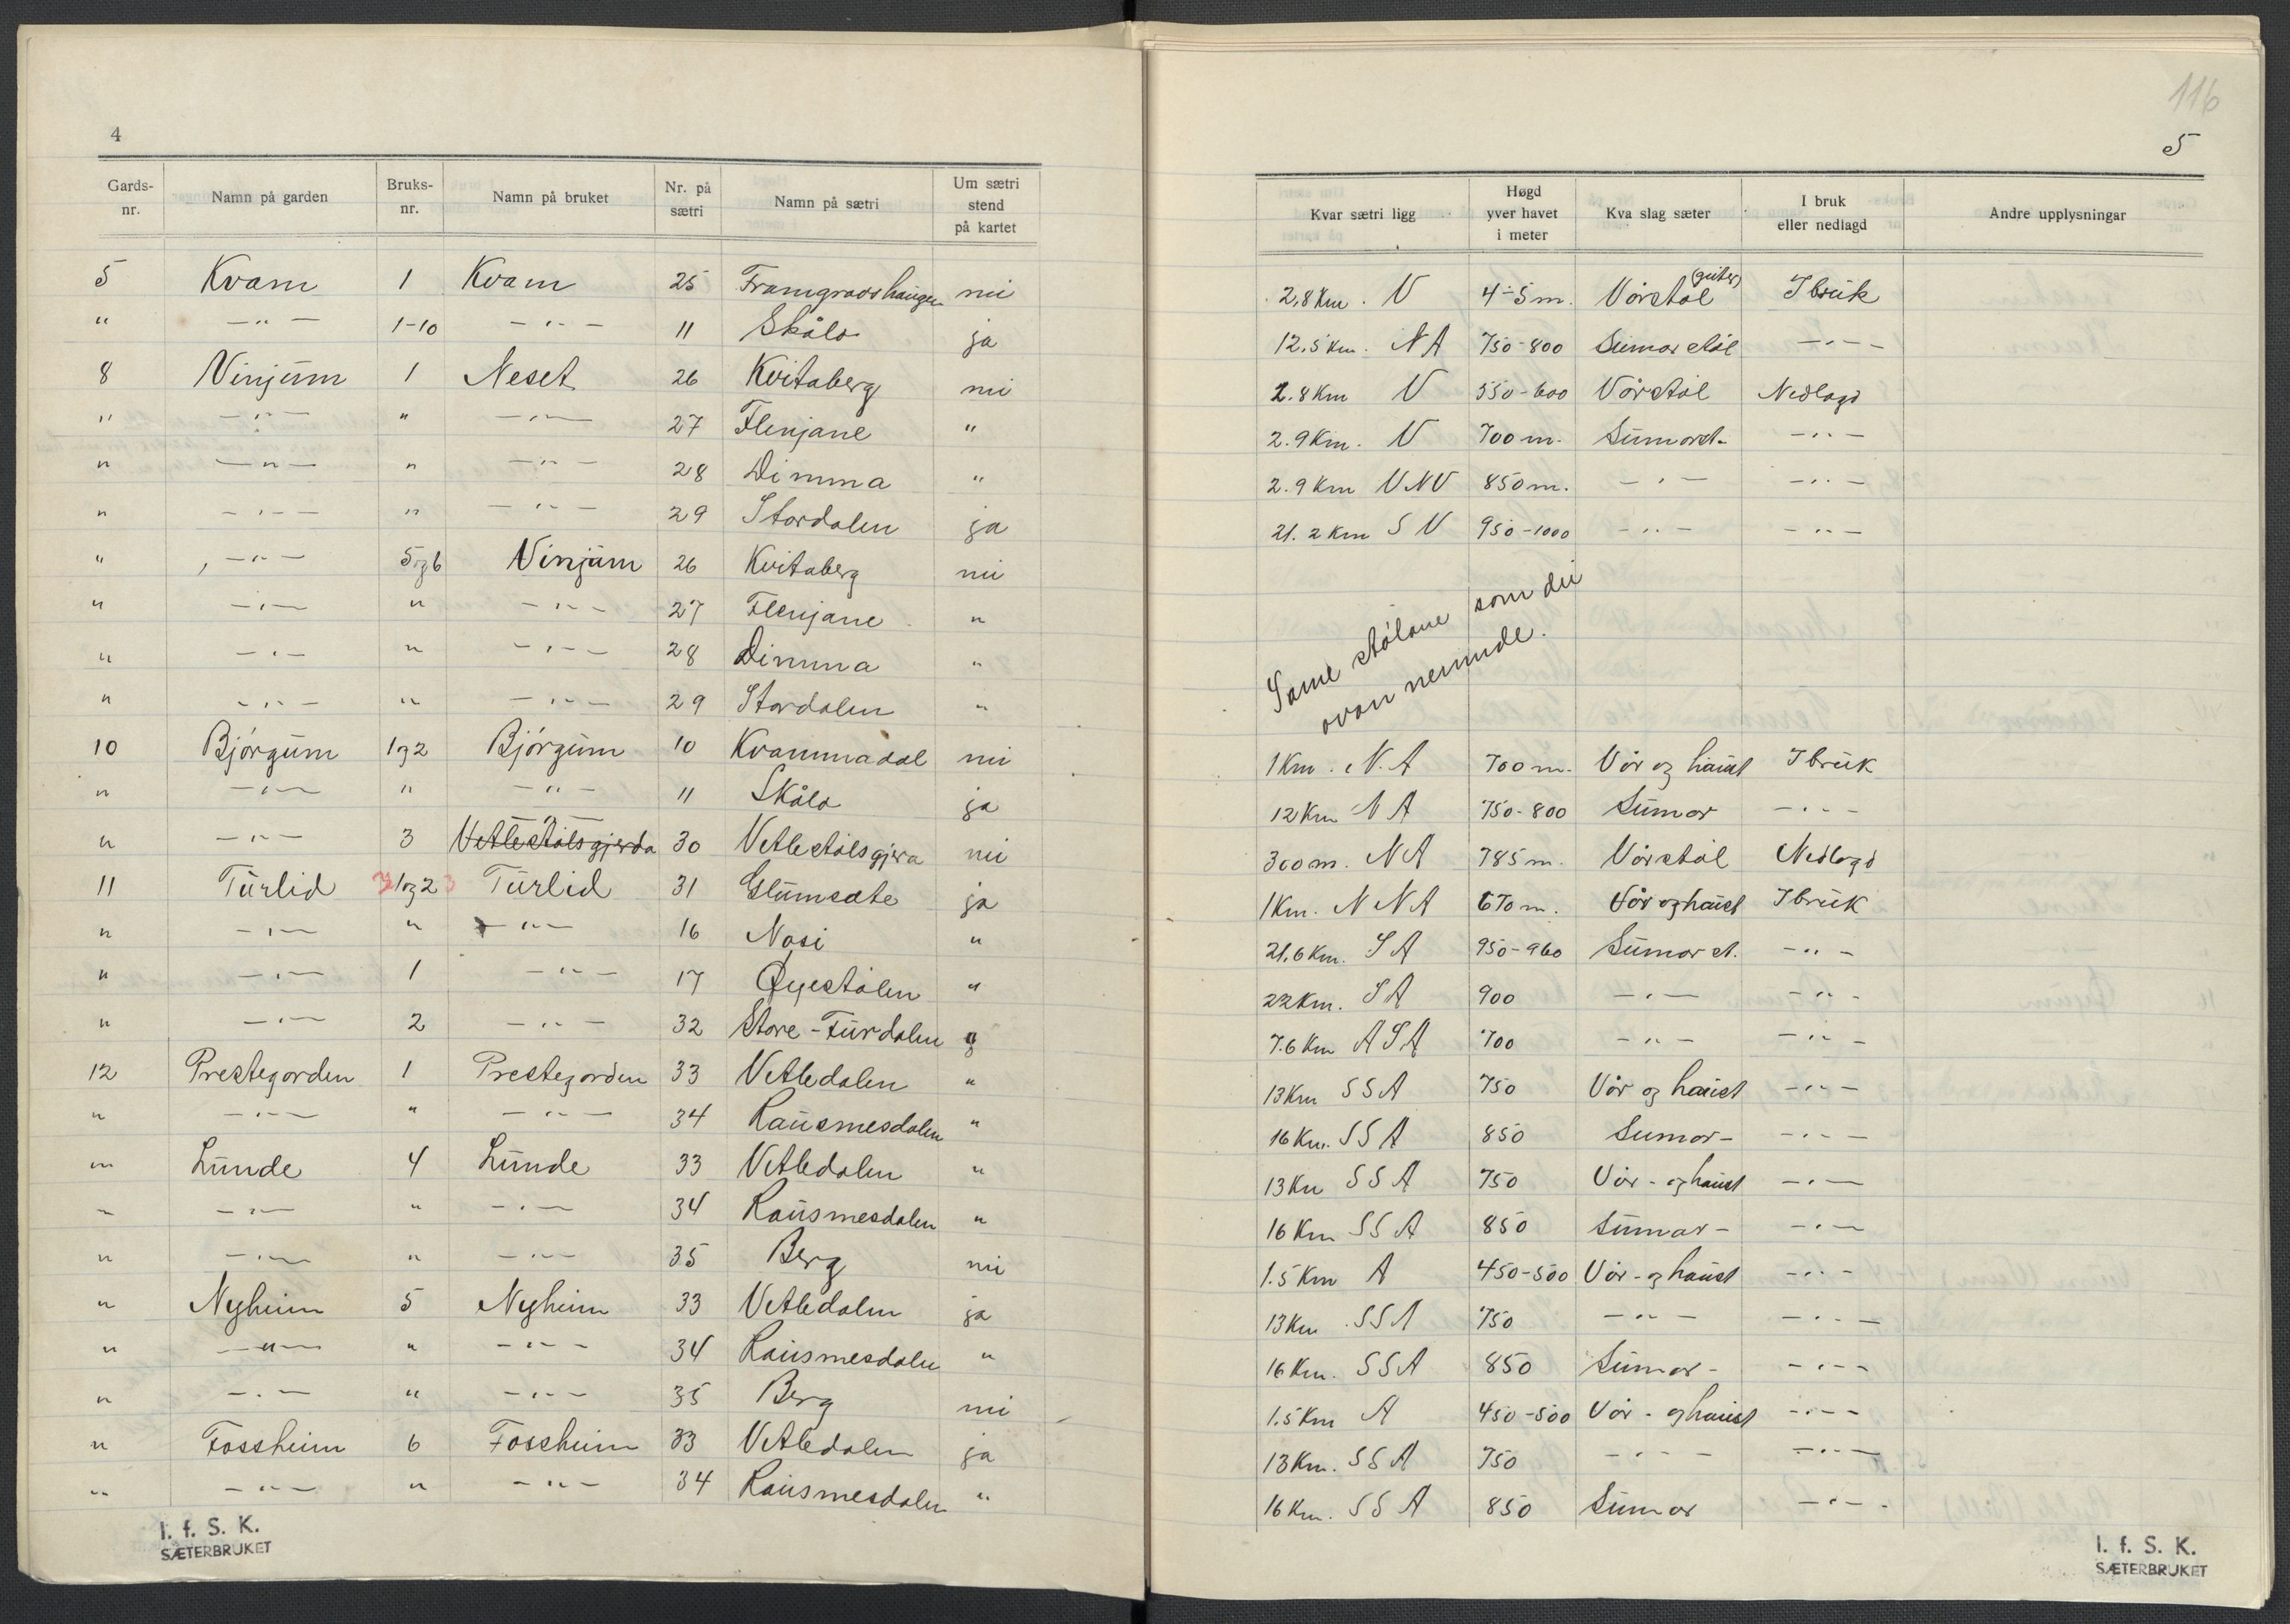 4
Gards-nr. | Namn på garden | Bruks-nr. | Namn på bruket | Nr. på sætri | Namn på sætri | Um sætri stend på kartet
5 | Kvam | 1 | Kvam | 25 | | nei
" | —"— | 1-10 | —"— | 11 | Skålo | ja
8 | Vinjum | 1 | Neset | 26 | Kvitaberg | nei
" | —"— | " | —"— | 27 | Flenjane | "
" | —"— | " | —"— | 28 | Dimma | "
" | —"— | " | —"— | 29 | Stordalen | ja
" | —"— | 5og6 | Vinjum | 26 | Kvitaberg | nei
" | —"— | " | —"— | 27 | Flenjane | "
" | —"— | " | —"— | 28 | Dimma | "
" | —"— | " | —"— | 29 | Stordalen | "
10 | Bjørgum | 1og2 | Bjørgum | 10 | Kvammadal | nei
" | —"— | " | —"— | 11 | Skålo | ja
" | —"— | 3 | —"— Vetlestølsgjerda | 30 | Vetlestølsgjera | nei
11 | Turlid | 1og2 3 | Turlid | 31 | Glumsete | ja
" | —"— | " | —"— | 16 | Nosi | "
" | —"— | 1 | —"— | 17 | Øyestølen | "
" | —"— | 2 | —"— | 32 | Store-Furdalen | "
12 | Prestegorden | 1 | Prestegorden | 33 | Vetledalen | "
" | —"— | " | —"— | 34 | Rausmesdalen | "
" | Lunde | 4 | Lunde | 33 | Vetledalen | "
" | —"— | " | —"— | 34 | Rausmesdalen | "
" | —"— | " | —"— | 35 | Berg | nei
" | Nyheim | 5 | Nyheim | 33 | Vetledalen | ja
" | —"— | " | —"— | 34 | Rausmesdalen | "
" | —"— | " | —"— | 35 | Berg | nei
" | Fossheim | 6 | Fossheim | 33 | Vetledalen | ja
" | —"— | " | —"— | 34 | Rausmesdalen | "
I. f. S. K.
SÆTERBRUKET
116
5
Kvar sætri ligg | Høgd yver havet i meter | Kva slag sæter | I bruk eller nedlagd | Andre upplysningar
2,8 Km. V | 4-5 m. | Vårstøl (geiter) | Ibruk
12,5 Km. NA | 750-800 | Sumarstøl | —"—
2.8 Km V | 550-600 | Vårstøl | Nedlagd
2.9 Km. V | 700 m. | Sumarst. | —"—
2.9 Km VNV | 850 m. | —"— | —"—
21.2 Km SV | 950-1000 | —"— | —"—
Same stølane som dei
ovan nemnde.
1 Km. N.A | 700 m. | Vår og haust | Ibruk
12 Km NA | 750-800 | Sumar | —"—
300 m. NA | 785 m. | Vårstøl | Nedlagd
1 Km. NNA | 670 m. | Vår og haust | Ibruk
21,6 Km. SA | 950-960 | Sumar st. | —"—
22 Km. SA | 900 | —"— | —"—
7.6 Km ASA | 700 | —"— | —"—
13 Km SSA | 750 | Vår og haust | —"—
16 Km. SSA | 850 | Sumar- | —"—
13 Km SSA | 750 | Vår- og haust | —"—
16 Km SSA | 850 | Sumar- | —"—
1.5 Km A | 450-500 | Vår- og haust | —"—
13 Km SSA | 750 | —"— | —"—
16 Km. SSA | 850 | Sumar- | —"—
1.5 Km A | 450-500 | Vår- og haust | —"—
13 Km. SSA | 750 | —"— | —"—
16 Km. SSA | 850 | Sumar | —"—
I. f. S. K.
SÆTERBRUKET